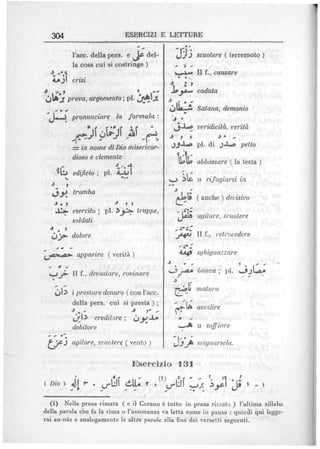 304 ESERCIZI E LETTURE
l'acc. della pers. e على del-
la cosa cui si costringe )
أزمة crisi
برهان prova, argomento; pl. براهين
بسمل pronunciare la formula :
بسم الله الرحمن الرحيم
= in nome di Dio misericor-
dioso e clemente
بناء edificio ; pl. أبنية
بوق tromba
جند esercito ; pl. جنود truppe,
soldati
حزن dolore
حصحص apparire ( verità )
خرب II f., devastare, rovinare
دان i prestare denaro ( con l'acc.
della pers. cui si presta ) ;
دائن creditore ;
debitore
زعزع agitare, scuotere ( vento )
زلزل scuotere ( terremoto )
سبب II f., causare
سقوط caduta
شيطان Satana, demonio
صدق veridicità, verità
صدور pl. di صدر petto
طأطأ abbassare ( la testa )
عاذ ب u rifugiarsi in
قاطع ( anche ) decisivo
قلقل agitare, scuotere
قهقر II f., retrocedere
قهقه sghignazzare
مصرف banca ; pl. مصارف
ناضج maturo
هاجم assalire
هب u soffiare
هرول svignarsela.
Esercizio 131
١ - ) قل أعوذ برب الناس (1) ٢ ملك الناس ٣ إله ( Dio )
(1) Nella prosa rimata ( e il Corano è tutto in prosa rimata ) l'ultima sillaba
della parola che fa la rima o l'assonanza va letta come in pausa ; quindi qui legge-
rai an-nās e analogamente le altre parole alla fine dei versetti seguenti.